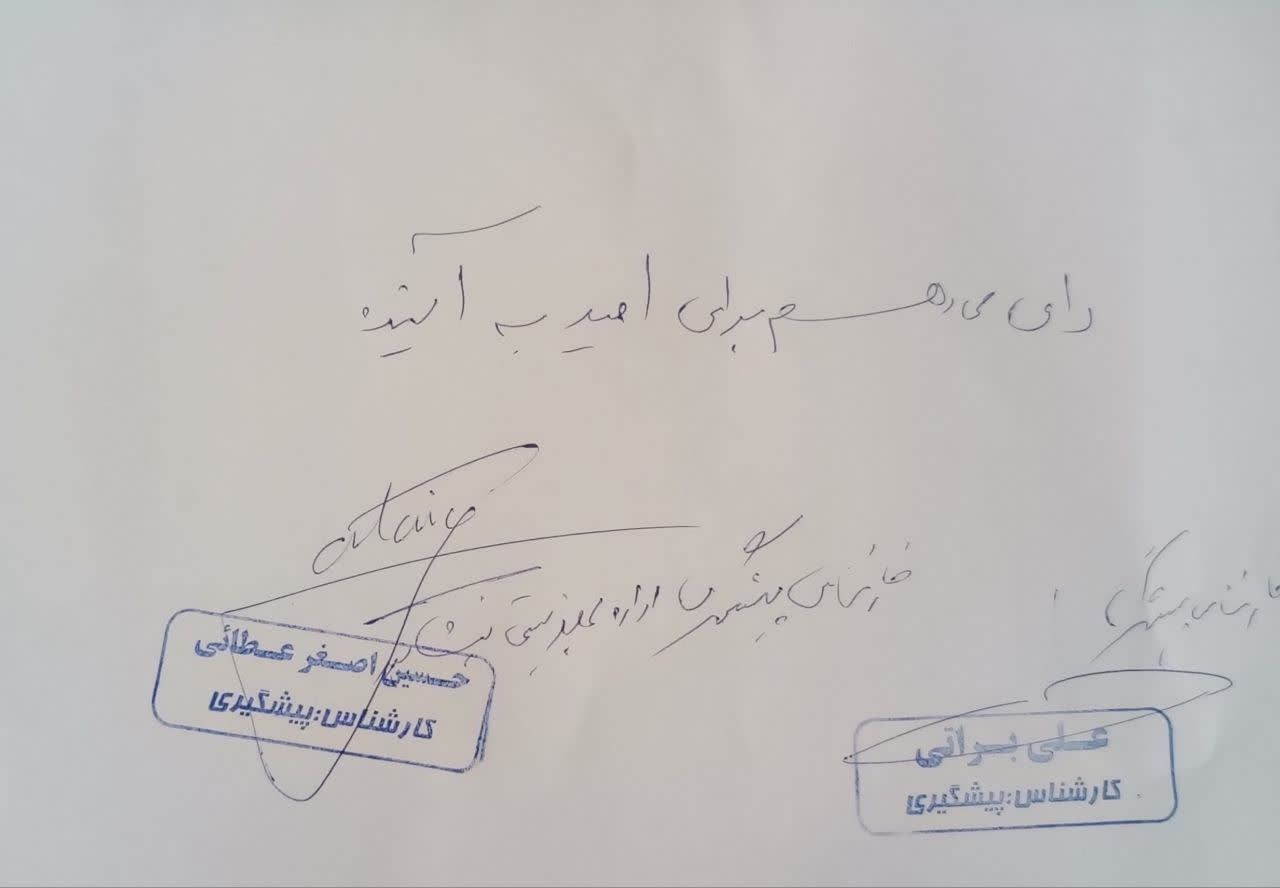 رای می‌دهم برای امید به آینده
کارشناس پیشگیری
علی براتی
کارشناس:پیشگیری
کارشناس پیشگیری اداره بهزیستی
حسین اصغر عطائی
کارشناس:پیشگیری